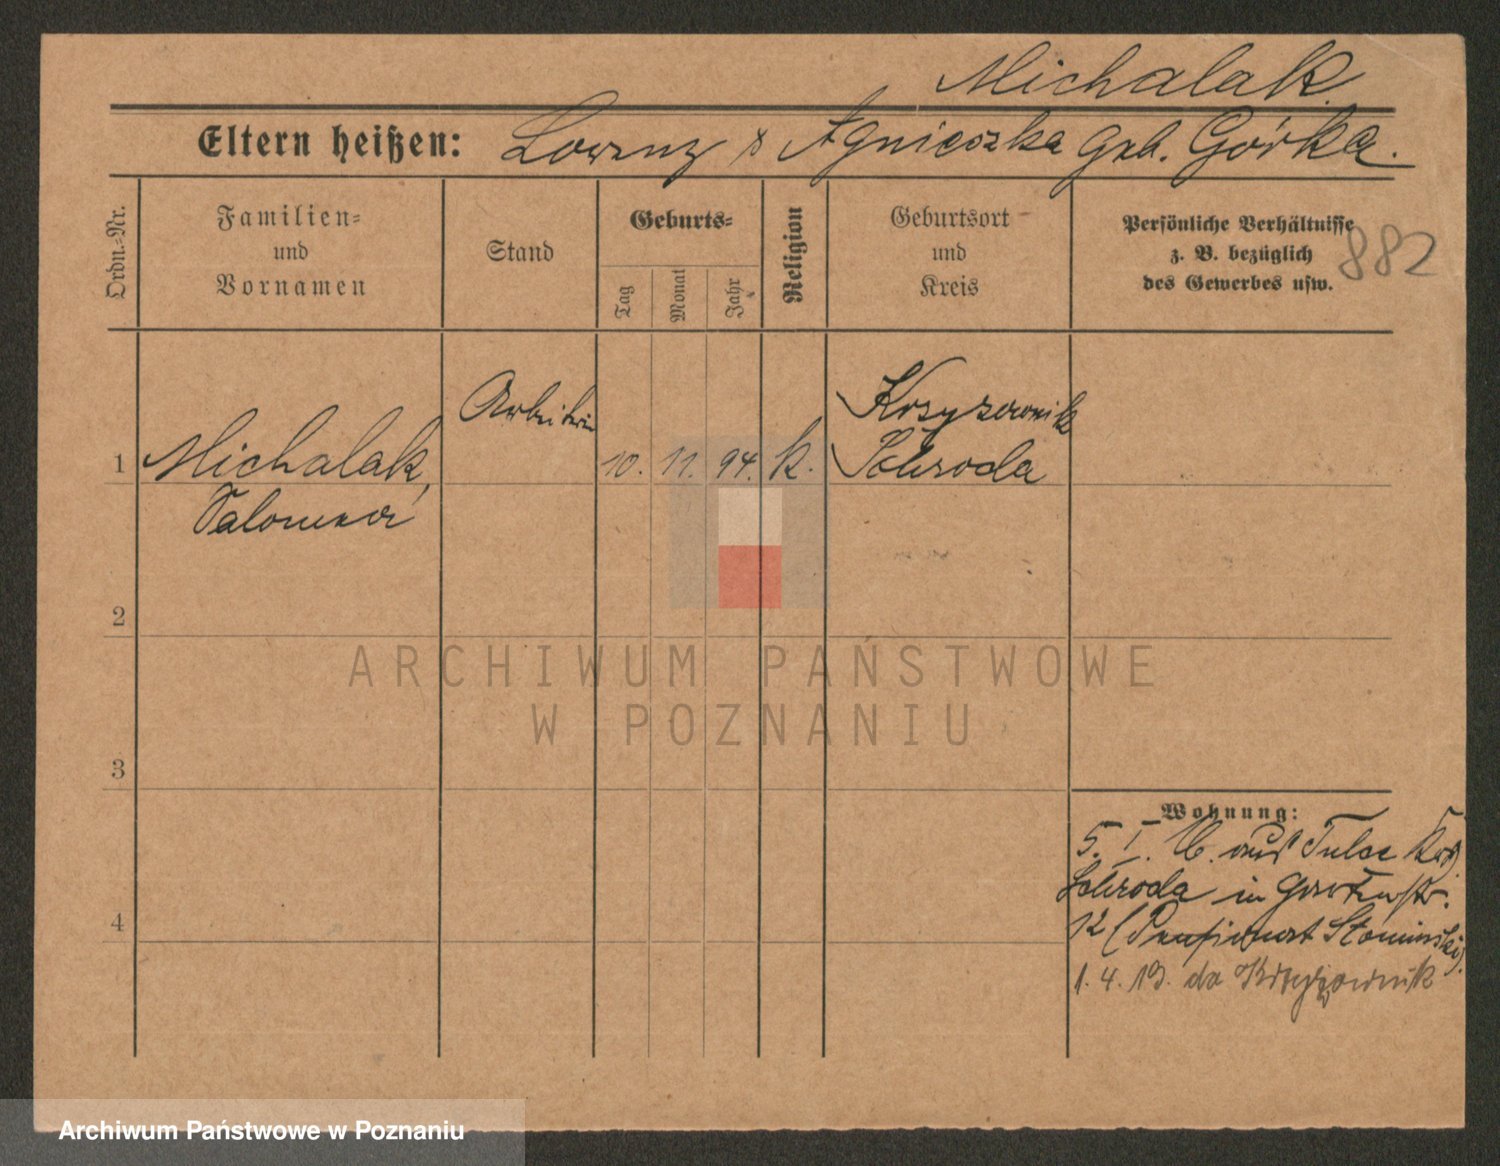 Michalak
Eltern heißen: Lorenz & Agnieszka geb. Górka.
Ordn.=Nr.
Familien=
und
Vornamen
Stand
Geburts=
Tag
Monat
Jahr
Religion
Geburtsort
und
Kreis
Persönliche Verhältnisse
z. B. bezüglich
des Gewerbes usw.
882
1
Michalak,
Salomea
Arbeiterin
10. 11. 94. k.
Krzyżownik
Schroda
2
3
4
Wohnung:
5. I. 16. aus Tulce Krs.
Schroda in Gartenstr.
12 (Pensionat Slominski).
1. 4. 19. do Krzyżownik
ARCHIWUM PAŃSTWOWE
W POZNANIU
Archiwum Państwowe w Poznaniu